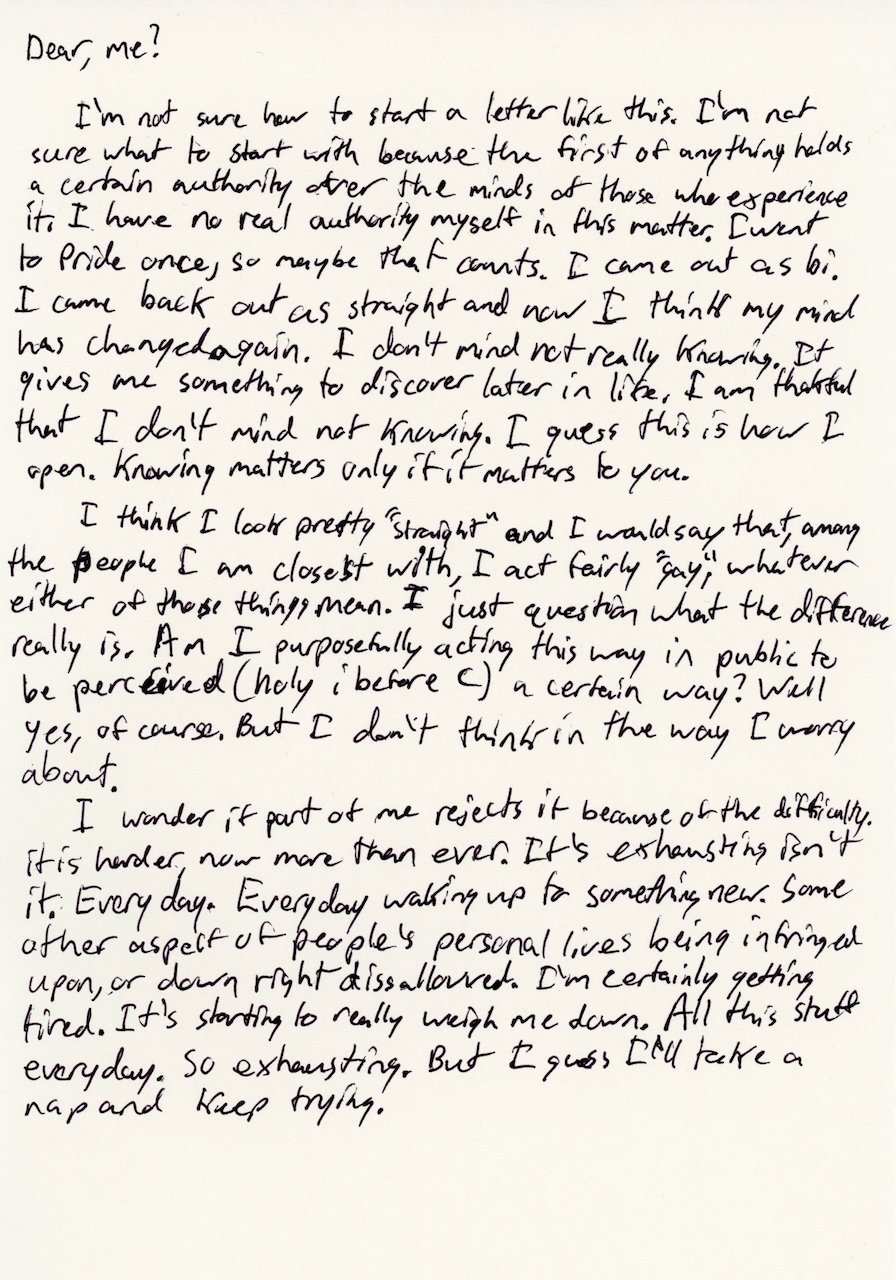 Dear, me?
I'm not sure how to start a letter like this. I'm not
sure what to start with because the first of anything holds
a certain authority over the minds of those who experience
it. I have no real authority myself in this matter. I went
to Pride once, so maybe that counts. I came out as bi.
I came back out as straight and now I think my mind
has changed again. I don't mind not really knowing. It
gives me something to discover later in life. I am thankful
that I don't mind not knowing. I guess this is how I
open. Knowing matters only if it matters to you.
I think I look pretty "straight" and I would say that, among
the people I am closest with, I act fairly "gay", whatever
either of those things mean. I just question what the difference
really is. Am I purposefully acting this way in public to
be perceived (holy i before c) a certain way? Well
yes, of course. But I don't think in the way I worry
about.
I wonder if part of me rejects it because of the difficulty.
it is harder, now more than ever. It's exhausting isn't
it. Every day. Everyday waking up to something new. Some
other aspect of people's personal lives being infringed
upon, or down right dissallowed. I'm certainly getting
tired. It's starting to really weigh me down. All this stuff
everyday. So exhausting. But I guess I'll take a
nap and keep trying.